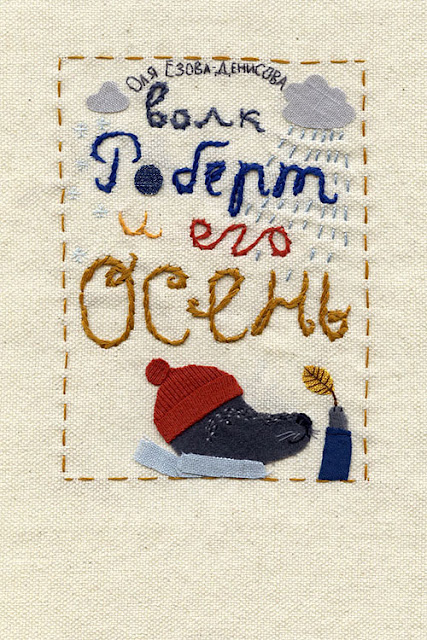 Оля Езова-Денисова
волк
Роберт
и его
Осень